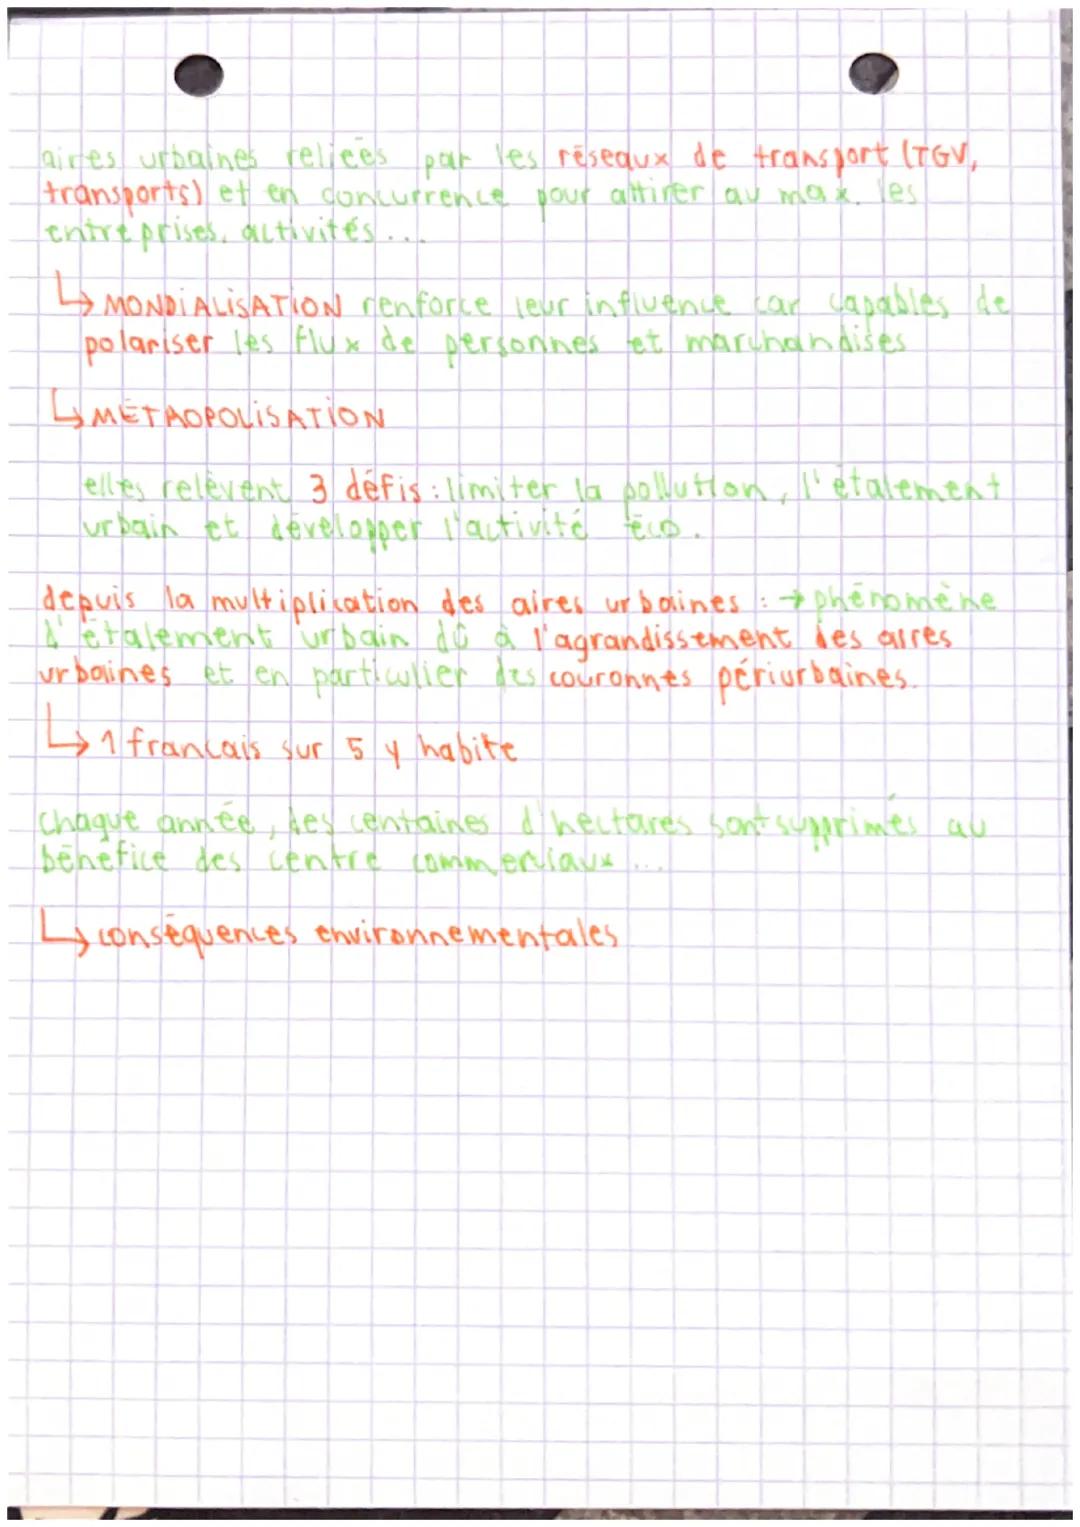 aires urbaines reliées par les réseaux de transport (TGV,
transports) et en concurrence pour attirer au max. les
entreprises, activités...
↳ MONDIALISATION renforce leur influence car capables de
polariser les flux de personnes et marchandises
↳ MÉTROPOLISATION
elles relèvent 3 défis : limiter la pollution, l'étalement
urbain et développer l'activité éco.
depuis la multiplication des aires urbaines : → phénomène
d'étalement urbain dû à l'agrandissement des aires
urbaines et en particulier des couronnes périurbaines.
↳ 1 francais sur 5 y habite
chaque année, des centaines d'hectares sont supprimés au
bénéfice des centre commerciaux ...
↳ conséquences environnementales